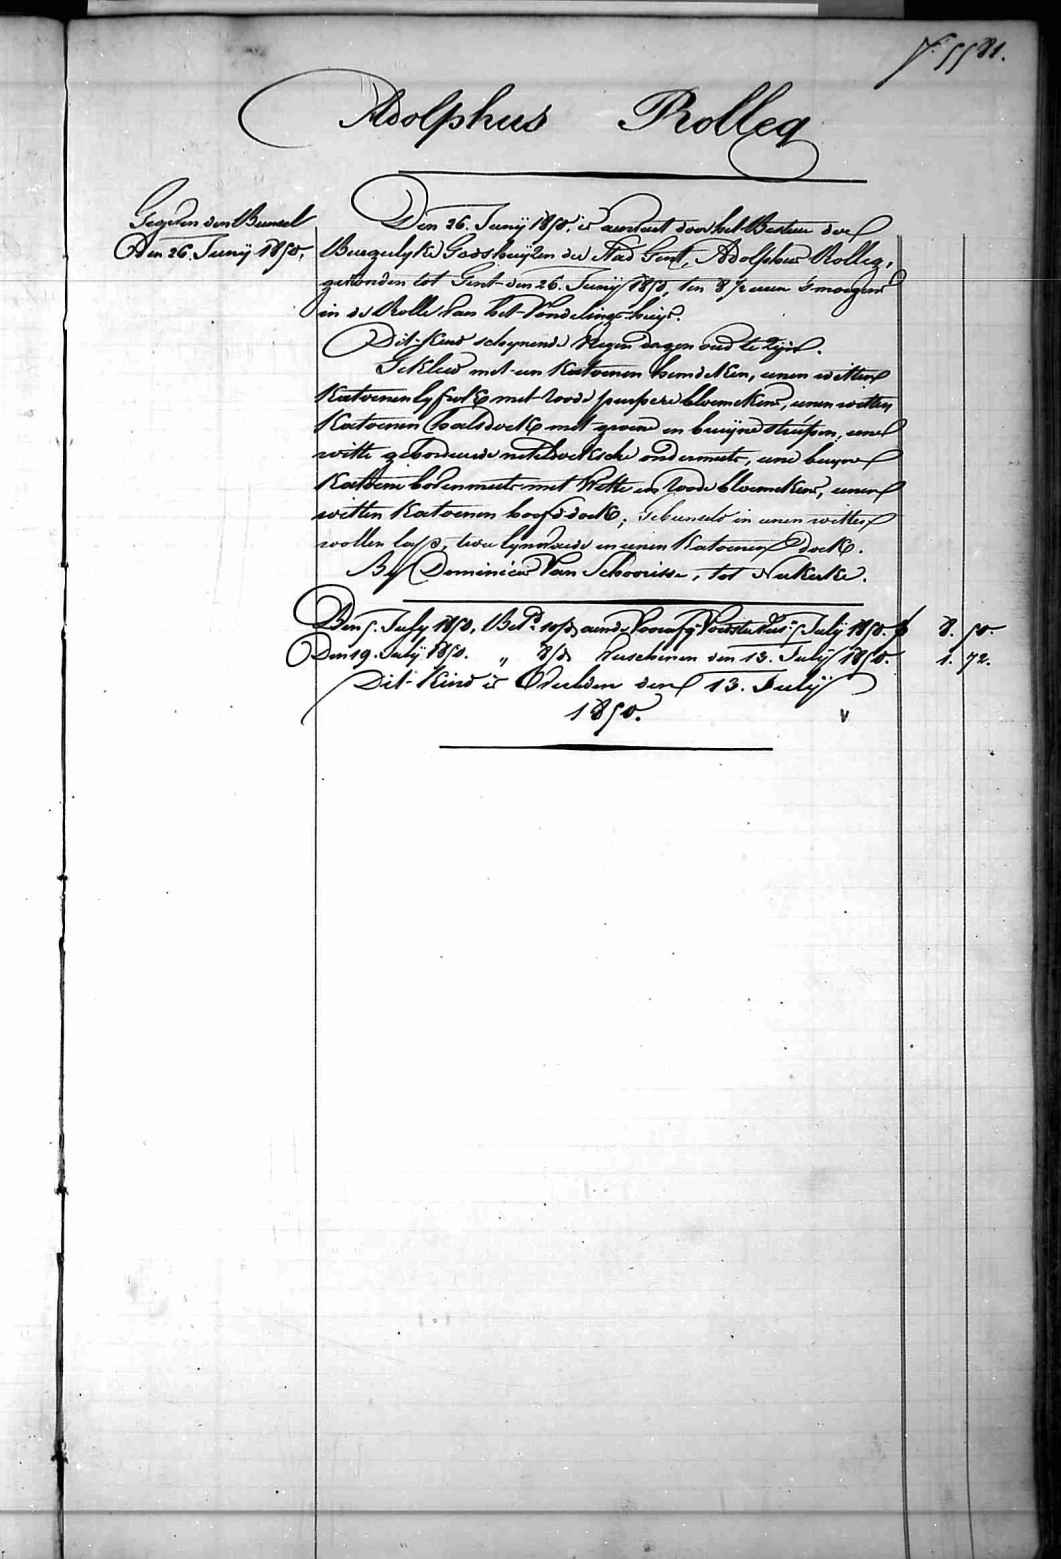 f.º 5581.
Adolphus Rolleq
Gegeven den Bunsel
den 26. Junij 1850,
Den 26. Junij 1850, is aenveert door het Bestuer der
Burgerlyke Godshuyzen der Stad Gent, Adolphus Rolleq,
gevonden tot Gent den 26. Junij 1850, ten 8 ½ uren 's morgens
in de Rolle van het Vondelings-huys.
Dit Kind schynende negen dagen oud te zyn.
Gekleed met een Katoenen hemdeken, eenen witten
Katoenen lyfrok met roode purpere bloemekens, eenen witten
Katoenen halsdoek met groene en bruyne streepen, eene
witte geborduerde neteldoeksche ondermuts, eene bruyne
Katoene bovenmuts met witte en roode bloemekens, eenen
witten Katoenen hoofd-doek; gebunseld in eenen witten
wollen lap, twee lynwaede en eenen Katoenen doek.
By Dominicus Van Schoorisse, tot Nukerke.
Den 5. July 1850, Bet.d 10/d aend. Voorafg. July 1850. f 8. 50.
Den 19. July 1850. " 8/d Verschenen den 13. July 1850. 1. 72.
Dit Kind is Overleden den 13. July
1850. v